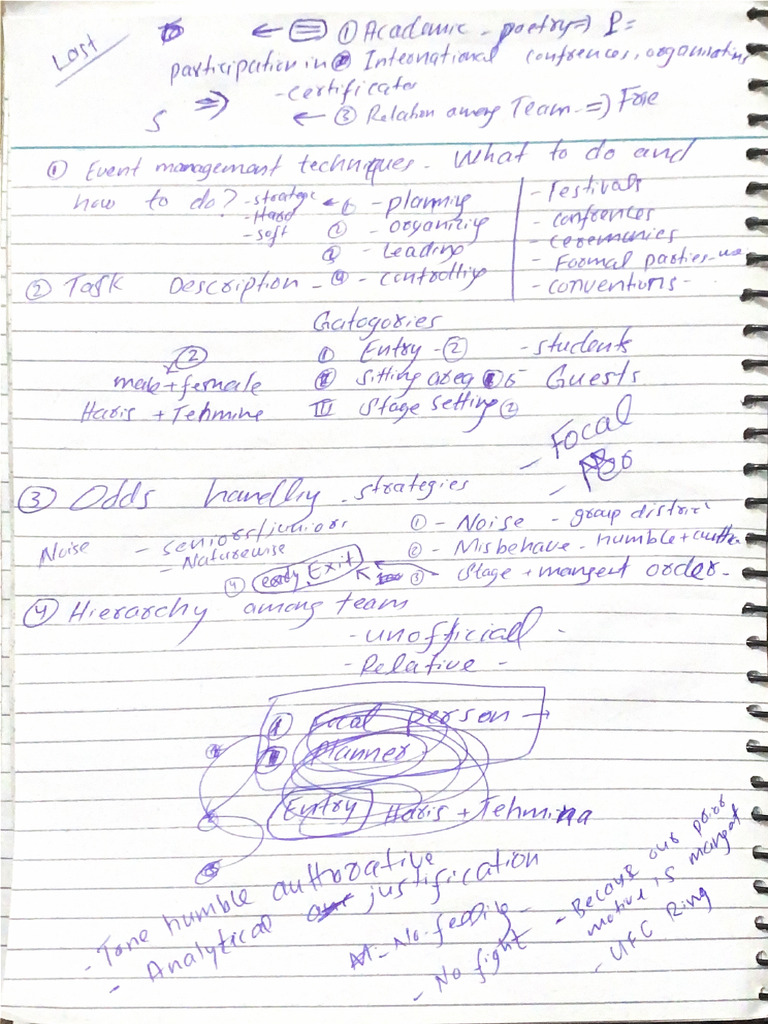 Last
① Academic - poetry => P=
participation in ② International confrences, organisations
- certificates
S => ③ Relation among Team => Free
① Event management techniques. What to do and
how to do? - strategic ① - planning - Festivals
- Hard ② - organizing - confrences
- soft ③ - Leading - ceremonies
- Formal parties
② Task Description - ④ - controlling - conventions -
Catogories
② ① Entry - ② - students
male + female II Sitting area 5 Guests
Haris + Tehmine III Stage Setting ②
- Focal
③ Odds handling - strategies
Noise - seniors/juniors ① - Noise - group
- Naturewise ② - Misbehave - humble +
④ early Exit ③ - Stage + mangent order -
④ Hierarchy among team
- unofficiall -
- Relative -
① Focal person →
Planner
Entry Haris + Tehmina
- Tone humble authorative
- Analytical justification
- No feeling -
- No fight
- Because our prior
motive is mangat
- UFC Ring